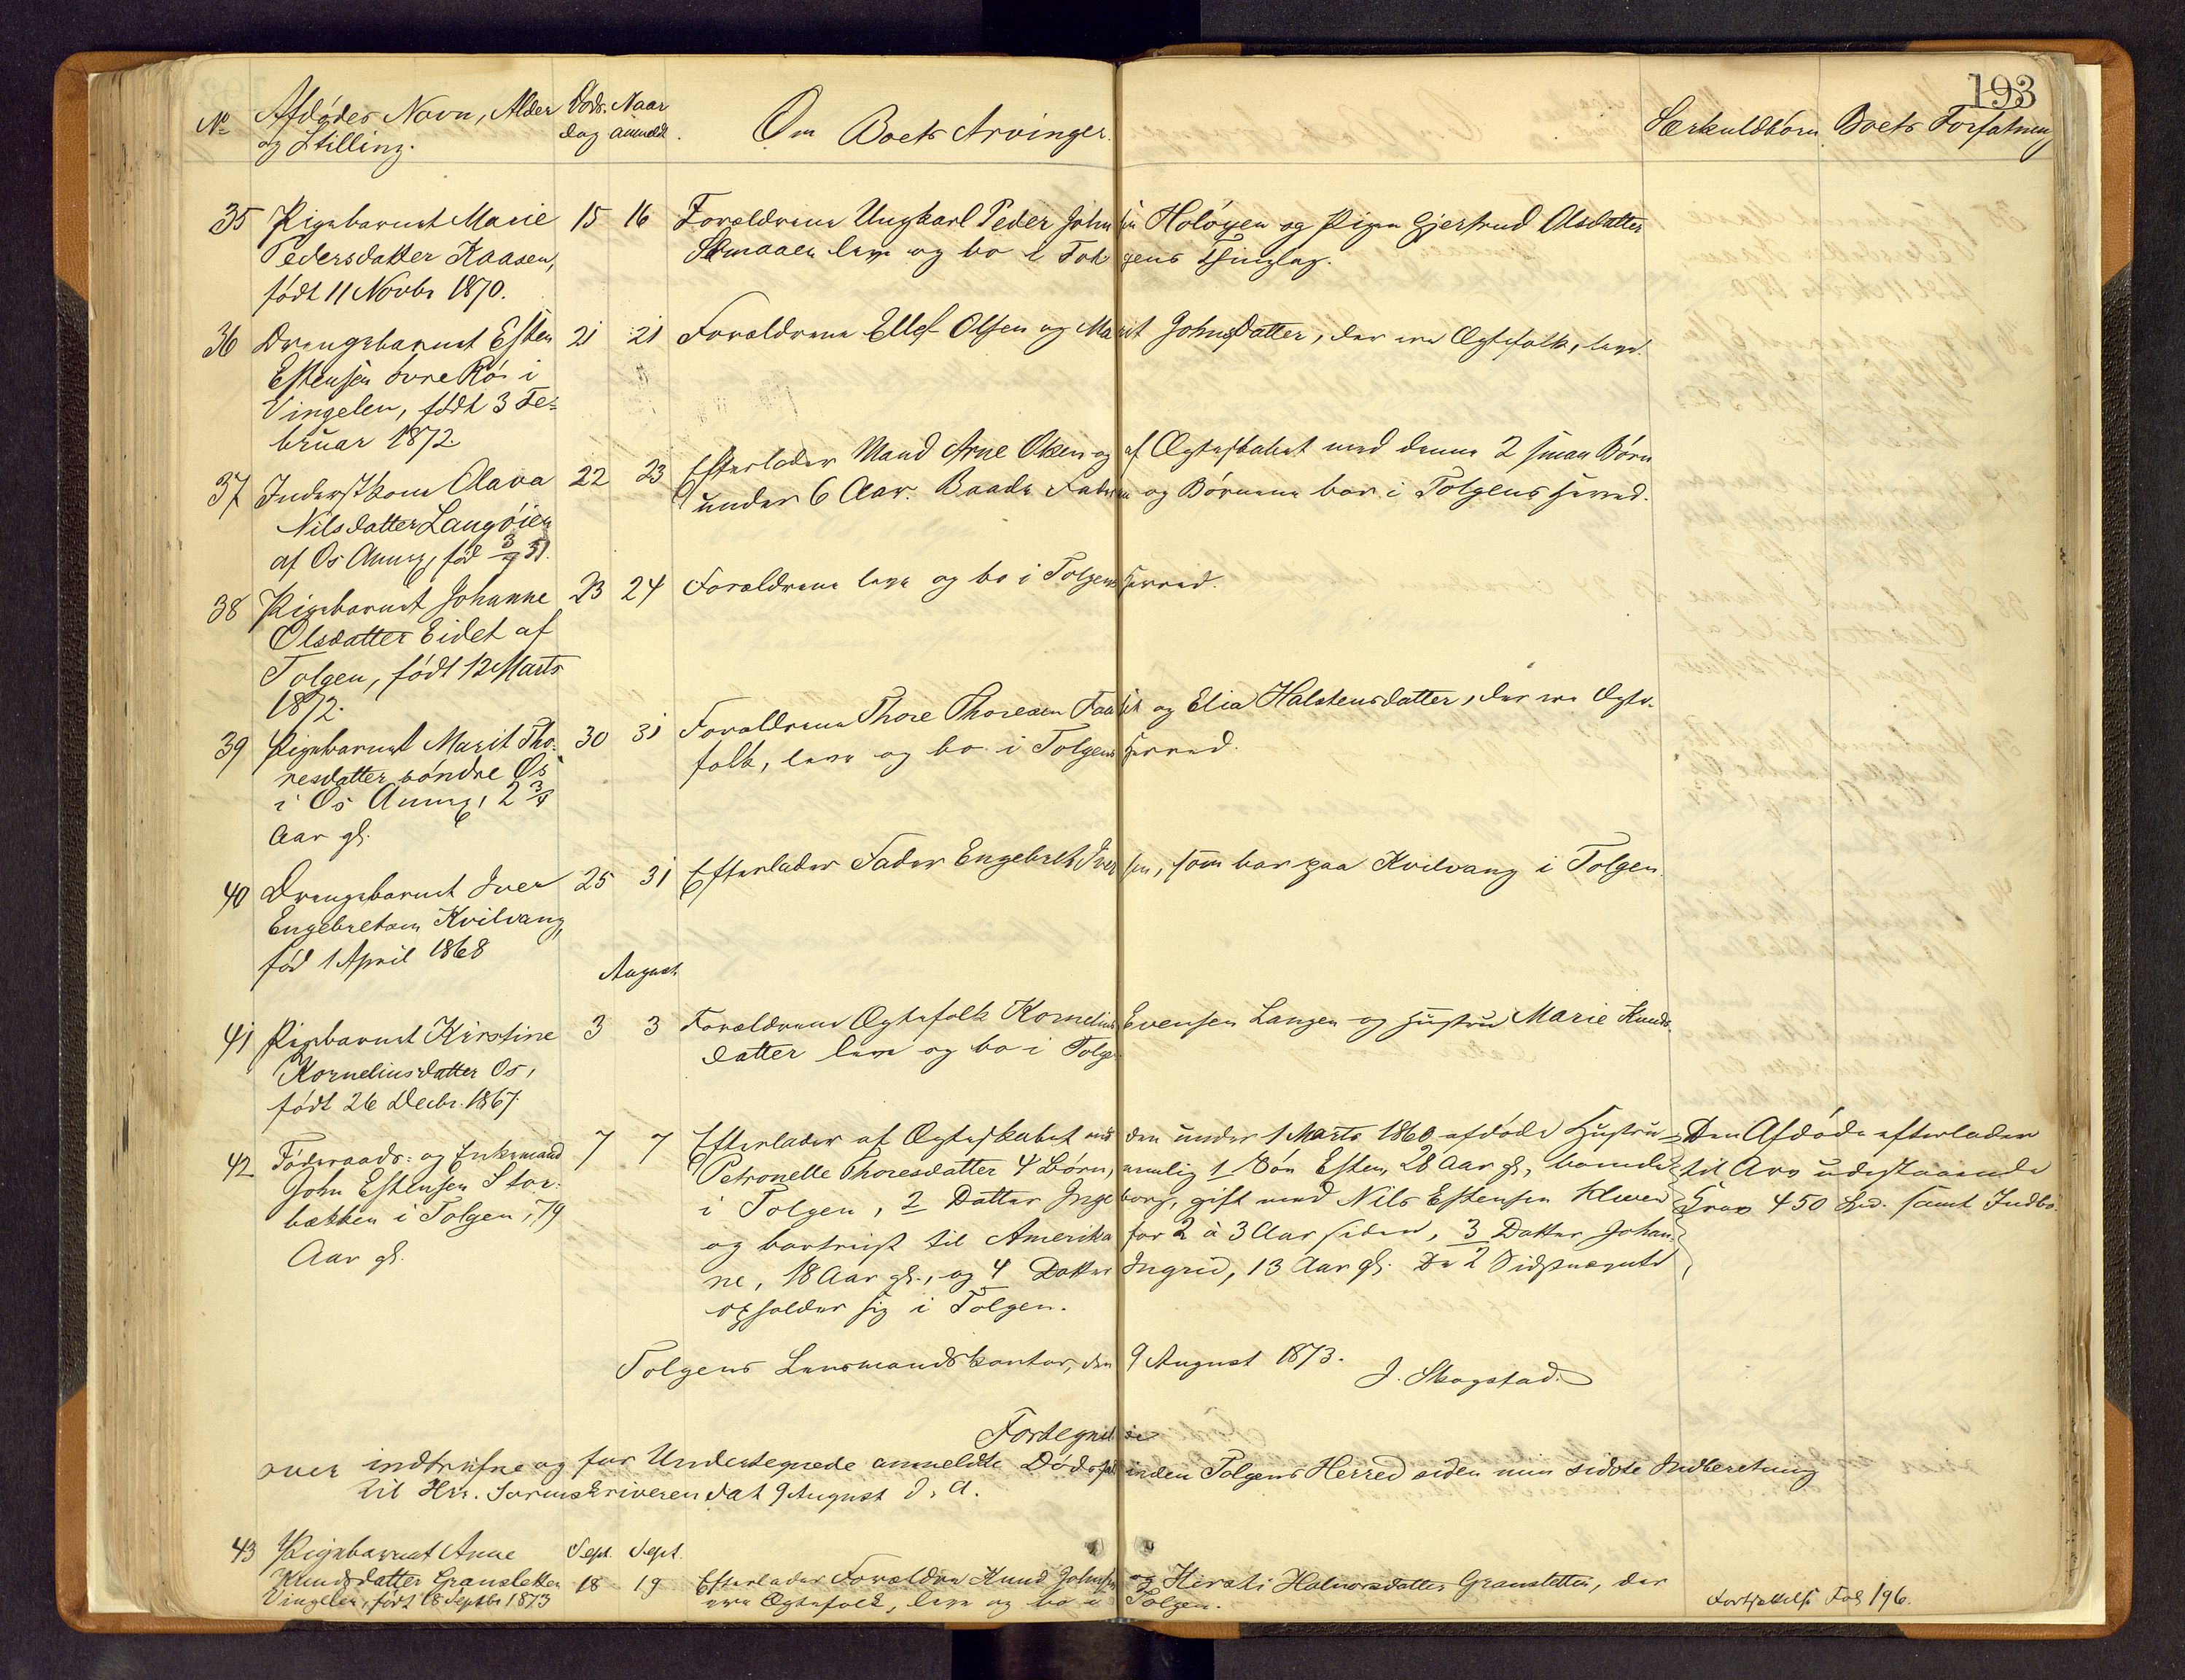 193
No Afdødes Navn, Alder og Stilling. Døds- dag Naar anmeldt. Om Boets Arvinger. Særkuldbørn Boets Forfatning
35 Pigebarnet Marie 15 16 Forældrene Ungkarl Peder Johnsen Holøyen og Pigen Gjertrud Olsdatter
Pedersdatter Kaasen, leve og bo i Tolgens Thinglag.
født 11 Novbr 1870.
36 Drengebarnet Esten 21 21 Forældrene Ellef Olsen og Marit Johnsdatter, der ere Ægtefolk, leve.
Estensen øvre Røe i
Vingelen, født 3 Fe-
bruar 1872.
37 Inderstkone Olava 22 23 Efterlader Mand Arne Olsen og af Ægteskabet med denne 2 smaa Børn
Nilsdatter Langøien under 6 Aar. Baade Faderen og Børnene bor i Tolgens Herred.
af Os Annex, fød 51.
38 Pigebarnet Johanne 23 24 Forældrene leve og bo i Tolgens Herred.
Olsdatter Eidet af
Tolgen, født 12 Marts
1872.
39 Pigebarnet Marit Tho- 30 31 Forældrene Thore Thoresen og Elia Halstensdatter, der ere Ægte-
resdatter søndre Os folk, leve og bo i Tolgens Herred.
i Os Annex, 2 3/4
Aar gl.
40 Drengebarnet Iver 25 31 Efterlader Fader Engebret Iversen, som bor paa Kvilvang i Tolgen.
Engebretsen Kvilvang,
fød 1 April 1868
August
41 Pigebarnet Kirstine 3 3 Forældrene Ægtefolk Kornelius Evensen Langen og Hustru Marie Knuds-
Korneliusdatter Os, datter leve og bo i Tolgen
født 26 Decbr. 1867.
42 Føderaads- og Enkemand 7 7 Efterlader af Ægteskabet med den under 1 Marts 1860 afdøde Hustru Den Afdøde efterlader
John Estensen Stor- Petronelle Thoresdatter 4 Børn, nemlig 1 Søn Esten, 28 Aar gl., boende til Arv udestaaende
bækken i Tolgen, 79 i Tolgen, 2 Datter Ingeborg, gift med Nils Estensen Kluven Krav 450 Spd. samt Indbo.
Aar gl. og bortreist til Amerika for 2 à 3 Aar siden, 3 Datter Johan-
ne, 18 Aar gl., og 4 Datter Ingrid, 13 Aar gl. De 2 Sidstnævnte
opholder sig i Tolgen.
Tolgens Lensmandskontor, den 9 August 1873.
J. Skogstad.
Fortegnelse
over indtrufne og for Undertegnede anmeldte Dødsfald inden Tolgens Herred siden min sidste Indberetning
til Hr. Sorenskriveren dat 9 August d. A.
43 Pigebarnet Anne Sept. Sept.
Knudsdatter Gransletten 18 19 Efterlader Forældre Knud Johnsen og Kirsti Halvorsdatter Gransletten, der
Vingelen, født 18 Septbr 1873 ere Ægtefolk, leve og bo i Tolgen.
Fortsættelse Fol 196.